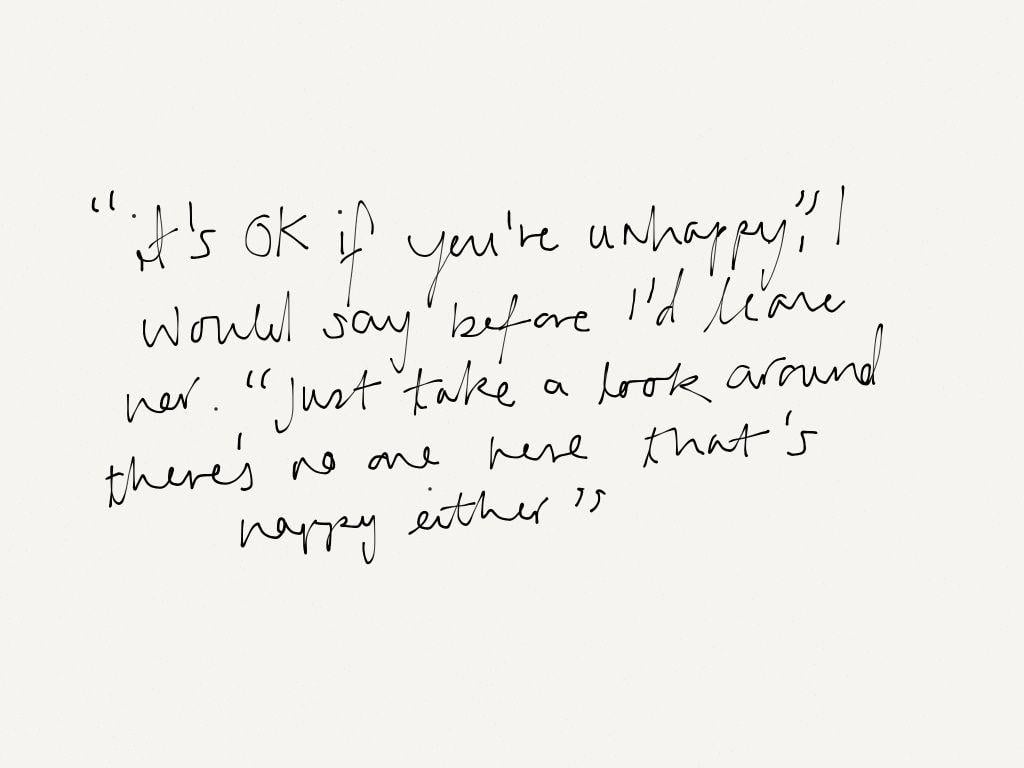 "it's OK if you're unhappy," I
would say before I'd leave
her. "Just take a look around
there's no one here that's
happy either"